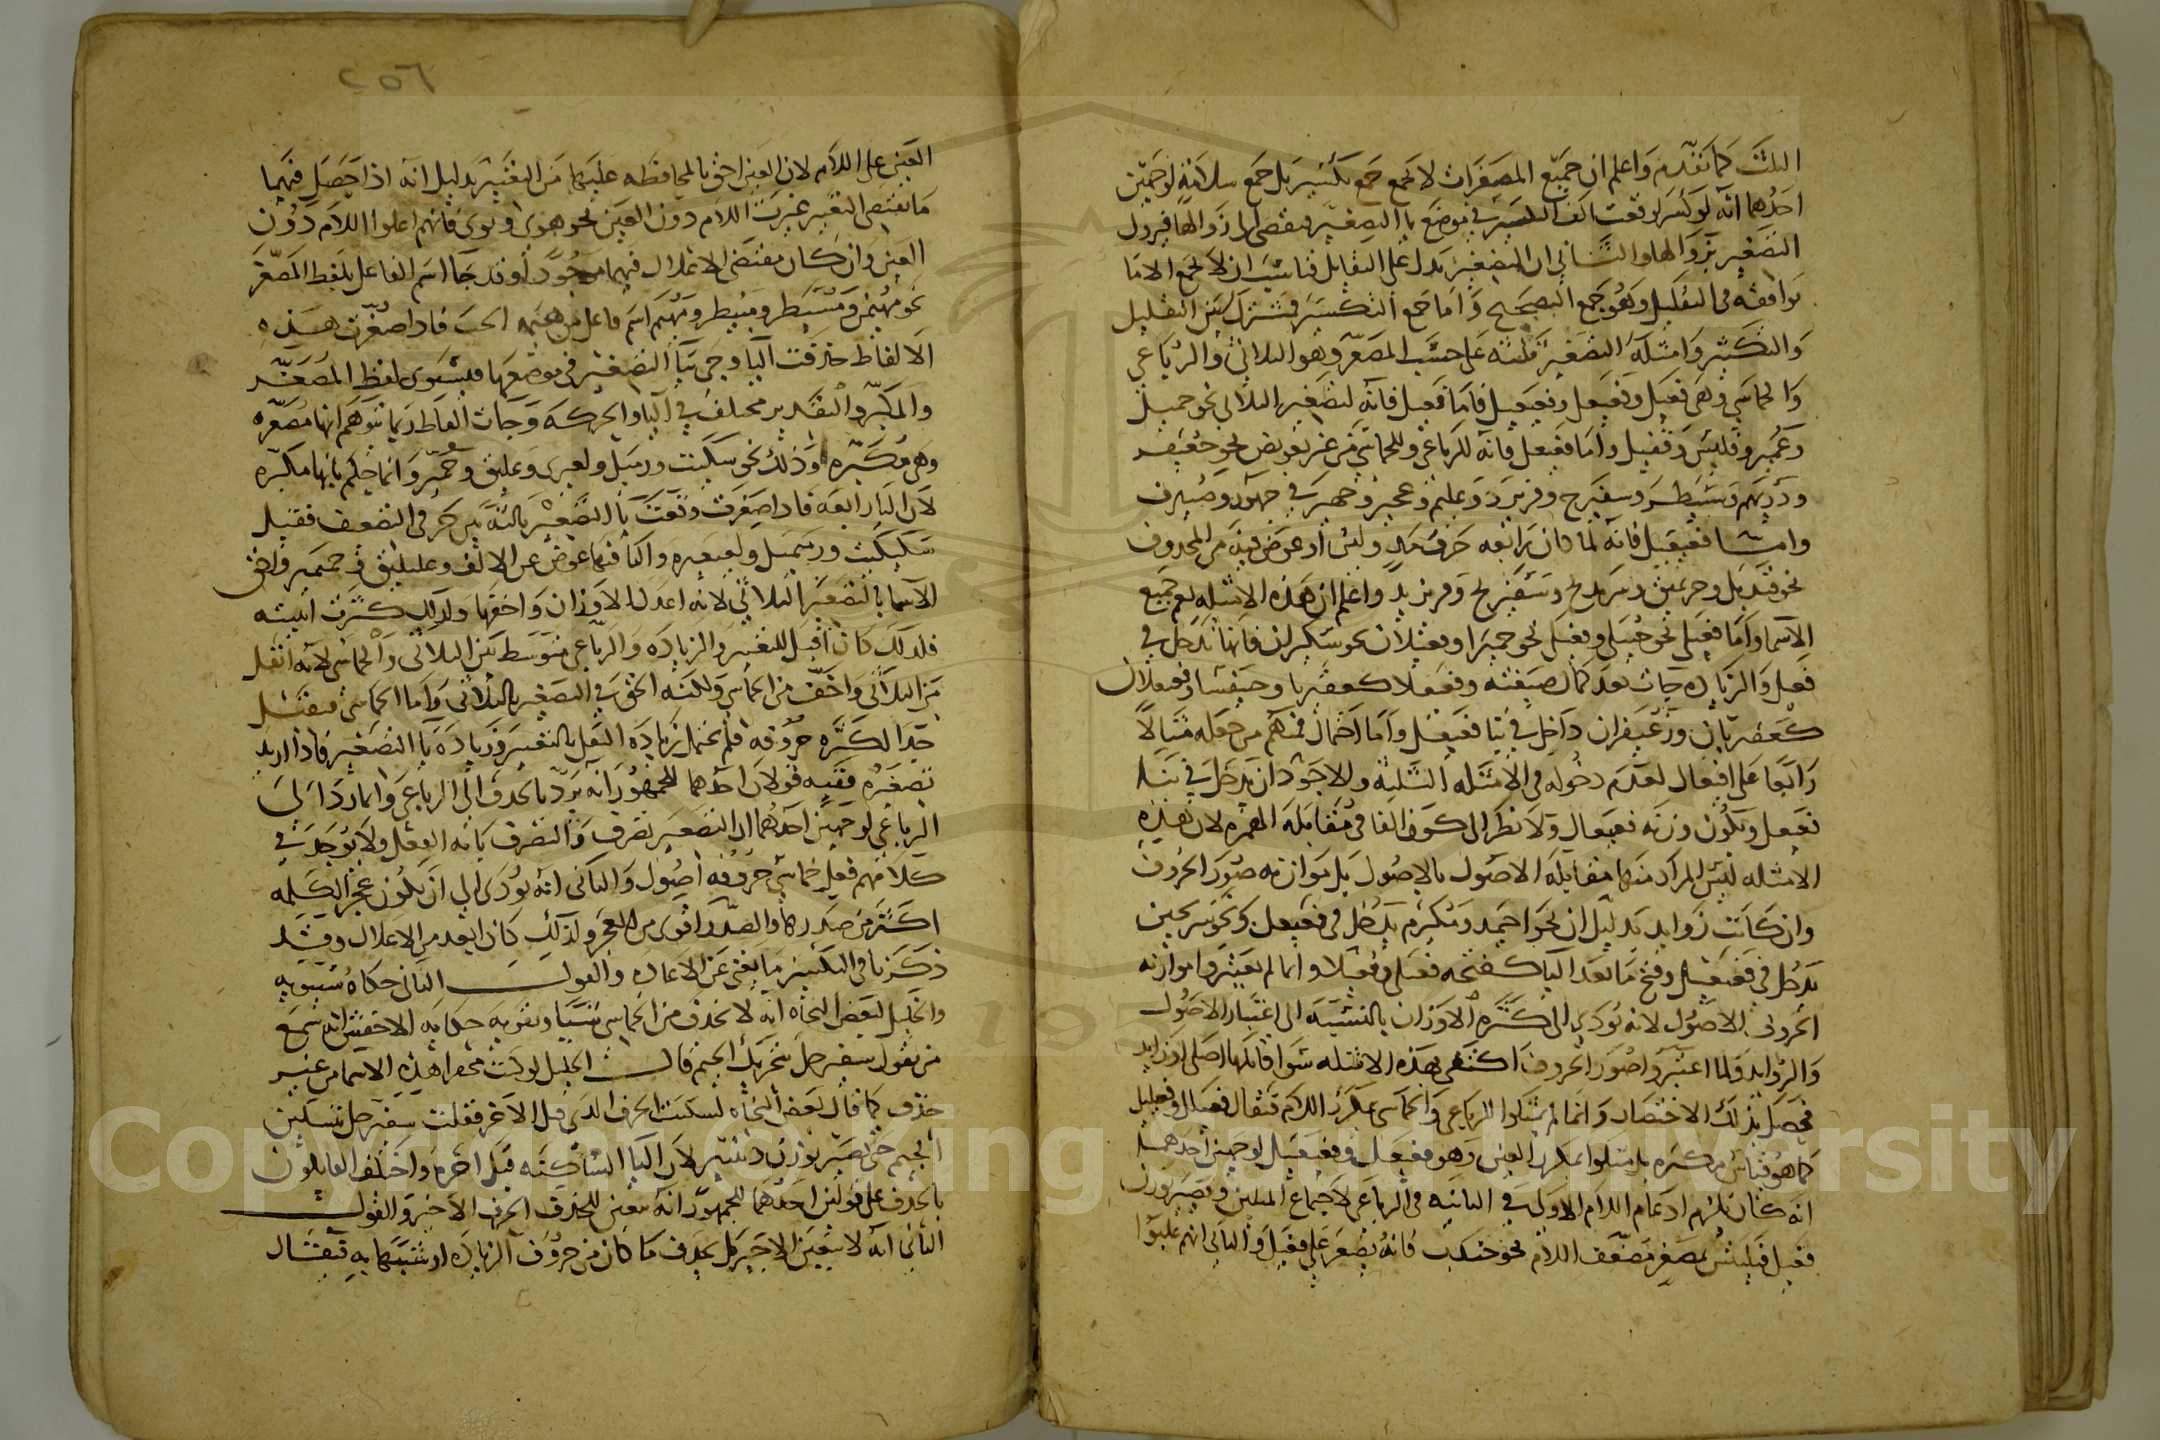 الثلث كما تقدم واعلم ان جميع المصغرات لا تجمع جمع تكسير بل جمع سلامة لوجهين
احدهما انه لو كسر لوقعت الف التكسير في موضع يا التصغير فيفضي الى زوالها فيزول
التصغير بزوالها والثاني ان التصغير يدل على التقليل فناسب ان لا تجمع الا ما
يوافقه في التقليل وهو جمع التصحيح واما جمع التكسير فمشترك بين التقليل
والتكثير وامثلة التصغير ثلثه على حسب المصغر وهو الثلاثي والرباعي
والخماسي وهي فعيل وفعيعل وفعيعيل فاما فعيل فانه لتصغير الثلاثي نحو جميل
وعمير وفليس وقفيل واما فعيعل فانه للرباعي وللخماسي من غير تعويض نحو جعيفر
ودريهم وسفيرج وفريزد وعجيز وجهير في جهور وصيرف
واما فعيعيل فانه لما كان رابعه حرف مد ولين او عوض فيه من المحذوف
نحو قنيديل وسفيريج وفريزيد واعلم ان هذه الامثله تعم جميع
الاسما واما فعيلى نحو حبيلى وفعيلا نحو حميرا وفعيلان نحو سكيران فانها تدخل في
فعيل والزياده جات بعد كمال صيغته وفعيعلا كعقيربا وخنيفسا وفعيعلان
كعقيربان وزعيفران داخل في بنا فعيعل واما اجمال فمنهم من جعله مثالا
رابعا على افيعال لعدم دخوله في الامثله الثلثه والاجود ان يدخل في بنا
فعيعل ويكون وزنه فعيعال ولا نظر الى كون الفا في مقابلة الهمزه لان هذه
الامثله ليس المراد منها مقابلة الاصول بالاصول بل موازنه صور الحروف
وان كانت زوايد بدليل ان نحو احيمد ومكيرم يدخل في فعيعل ونحو سريحين
يدخل في فعيعيل وفتح ما بعد اليا كفتحه فعيلى وفعيلا وانما لم يعتبروا موازنه
الحروف الاصول لانه يودي الى كثرة الاوزان بالنسبه الى اعتبار الاصول
والزوايد ولما اعتبروا صور الحروف اكتفى بهذه الامثله سوا قابلها اصلي او زايد
فحصل بذلك الاختصار وانما لم يمثلوا الرباعي والخماسي بتكرير اللام فيقال فعيلل وفعيليل
كما هو قياس مكبره بل مثلوا بتكرير العين وهو فعيعل وفعيعيل لوجهين احدهما
انه كان يلزم ادغام اللام الاولى في الثانيه في الرباعي لاجتماع المثلين وتصير وزن
فعيل فيلتبس بمصغر مضعف اللام نحو خدب فانه يصغر على فعيل والثاني انهم غلبوا
العين على اللام لان العين احق بالمحافظه عليها من التغيير بدليل انه اذا حصل فيهما
ما يقتضي التغيير غيرت اللام دون العين نحو هوى ونوى فانهم اعلوا اللام دون
العين وان كان مقتضى الاعلال فيهما موجودا وقد جا اسم الفاعل بلفظ المصغر
نحو مهيمن ومسيطر ومبيطر ومهيم اسم فاعل من هيمه الحب فاذا صغرت هذه
الالفاظ حذفت اليا وجي بيا التصغير في موضعها فيستوي لفظ المصغر
والمكبر والتقدير مختلف في اليا والحركه وجات الفاظ ربما يتوهم انها مصغره
وهي مكبره وذلك نحو سكيت وزميل ولغيزى وعليق وحمير وانما حكم بانها مكبره
لان اليا رابعه فاذا صغرت وقعت يا التصغير ثالثه بين حرفي التضعيف فقيل
سكيكيت وزميميل ولغيغيز واليا فيها عوض عن الالف وعليليق وحميمير واحق
الاسما بالتصغير الثلاثي لانه اعدل الاوزان واخفها ولذلك كثرت ابنيته
فلذلك كان اقبل للتغيير والزياده والرباعي متوسط بين الثلاثي والخماسي لانه اثقل
من الثلاثي واخف من الخماسي ولكنه الحق في التصغير بالثلاثي واما الخماسي فيثقل
جدا لكثره حروفه فلم يحتمل زيادة الثقل بالتغيير وزيادة يا التصغير فاذا اريد
تصغيره ففيه قولان احدهما للجمهور انه يرد بالحذف الى الرباعي وانما رد الى
الرباعي لوجهين احدهما ان التصغير تصرف والتصرف بابه الفعل ولا يوجد في
كلامهم فعل خماسي حروفه اصول والثاني انه يودي الى ان يكون عجز الكلمه
اكثر من صدرها والصدر اقوى من العجز ولذلك كان ابعد من الاعلال وقد
ذكرنا في التكسير ما يغني عن الاعاده والقول الثاني حكاه سيبويه
والخليل لبعض النحاه انه لا يحذف من الخماسي شيئا وتقويه حكايه الاخفش انه سمع
من يقول سفيرجل بتحريك الجيم قال الخليل لو كنت محقرا هذه الاسما من غير
حذف كما قال بعض النحاه لسكنت الحرف الذي قبل الاخر فقلت سفيرجل بتسكين
الجيم حتى تصير بوزن دنينير لان اليا الساكنه قبل اخره واختلف القايلون
بالحذف على قولين احدهما للجمهور انه يتعين للحذف الحرف الاخير والقول
الثاني انه لا يتعين الاخير بل يحذف ما كان من حروف الزياده او شبيها به فيقال